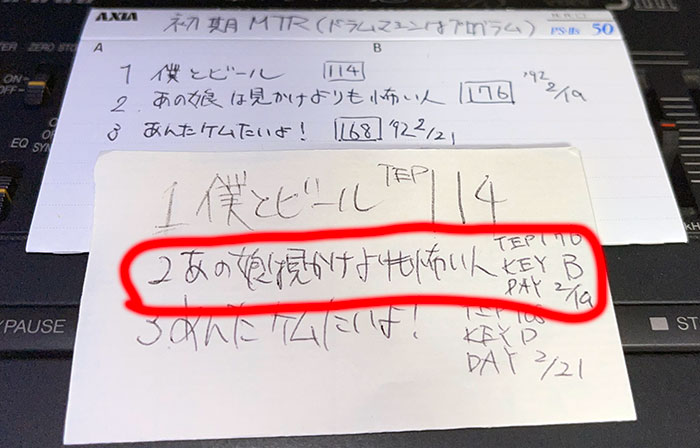 AXIA 初期MTR(ドラムマシンはプログラム) PS-IIs 50
A B
ZERO STO
ON
OFF
1 僕とビール 114
2. あの娘は見かけよりも怖い人 176 '92 2/19
3 あんたケムたいよ! 168 '92 2/21
EQ
SYN
1 僕とビール TEP 114
2 あの娘は見かけよりも怖い人 TEP 176
KEY B
DAY 2/19
3. あんたケムたいよ! TEP 168
KEY D
DAY 2/21
PAUSE
ST